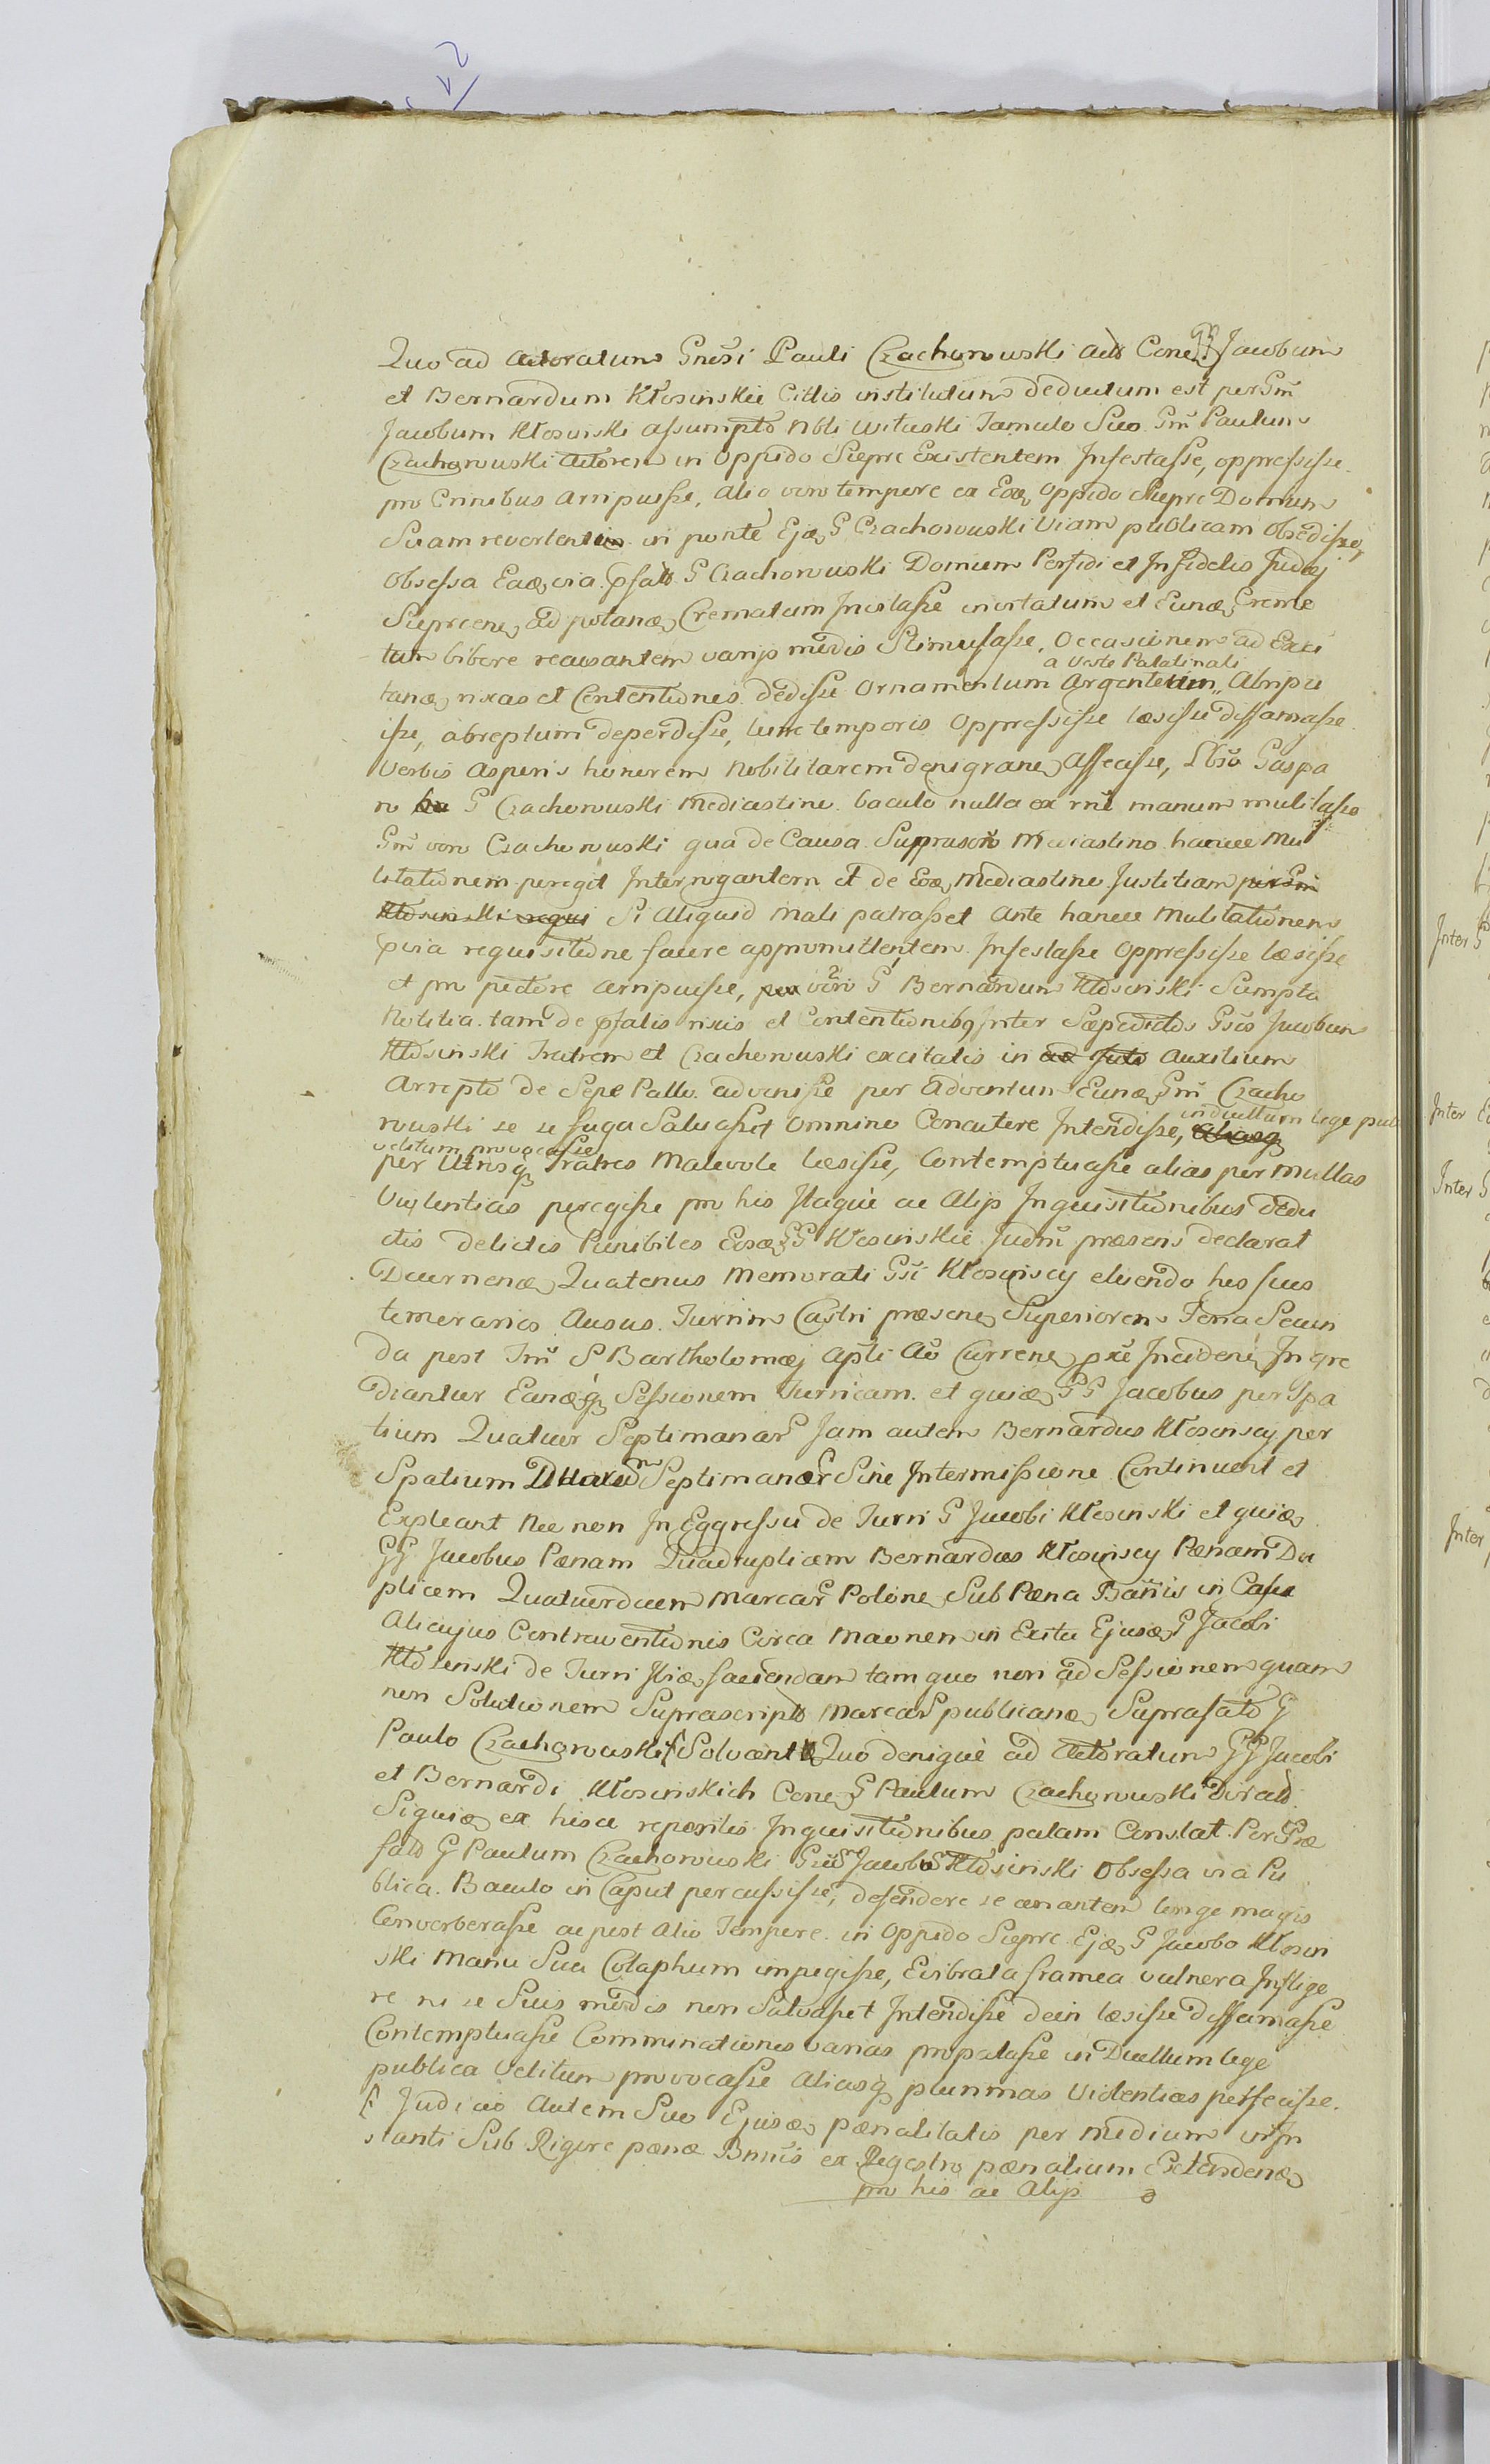 Quo ad Actoratum Gnosi Pauli Czachorowski ad Cone GG Jacobum
et Bernardum Kłosinskie Cittis institutum deductum est per Gm
Jacobum Kłosinski assumpto Nbli Witwski Famulo Suo Gm Paulum
Czachorowski Actorem in Oppido Sieprc Existentem Infestasse, oppressisse
pro Crinibus arripuisse, alio vero tempore ex Eoq Oppido Sieprc Domum
Suam revertentem in ponte Ejq G Czachorowski Viam publicam Obsedisse,
Obsessa Eaq via pfato G Czachorowski Domum Perfidi et Infidelis Judej
Sieprcenq ad potanq Crematum Invitasse invitatum et Eunq Crema
tum bibere recusantem varijs medis Stimulasse, Occasionem ad Exci
tanq rixas et Contentiones dedisse Ornamentum Argenteum a Veste Palatinali Abripu
isse, abreptum deperdisse, tunc temporis Oppressisse læsisse diffamasse
Verbis Asperis honorem Nobilitarem denigranq Affecisse, Lbso Gaspa
ro G Czachorowski Mediastino baculo nulla ex rne manum mutilasse
Gm vero Czachorowski qua de Causa Suprascro Mediastino hancce Mu
tilationem peregit Interrogantem et de Eoq Mediastino Justitiam per Gm
Kłosinski requi Si Aliquid Mali patrasset Ante hancce Mutilationem
pvia requisitione facere appromittentem Infestasse Oppressisse læsisse
et pro pectore arripuisse, vero G Bernardum Kłosinski Sumpta
Notitia tam de pfatis rixis et Contentionibq Inter Sæpedictos Gsos Jacobum
Kłosinski Fratrem et Czachorowski excitatis in ad Auxilium
Arrepto de Sepe Pallo advenisse per Adventum Eunq Gm Czacho
rowski se se fuga Salvasset omnino Concutere Intendisse, Aliasq in duellum lege pub
vetitum provocasse
per Utrosq Fratres Malevole læsisse, Contemptuasse alias per multas
Violentias peregisse pro his Itaque ac Alijs Inquisitionibus dedu
ctis delictis Punibiles Eosq GG Kłosinskie Judm præsens declarat
Decernenq Quatenus Memorati Gsi Kłosinscy eluendo hos suos
temerarios Ausus Turrim Castri præsenq Superiorem Feria Secun
da post Fm S Bartholomæj Apsti Ao Currenq pxe Incidenq Ingre
diantur Eunqq Sessionem Turricam et quiq GG Jacobus per Spa
tium Quatuor Septimanar Jam autem Bernardus Kłosinscy per
Spatium Duarum Septimanar Sine Intermissione Continuent et
Expleant Nec non In Eggressu de Turri G Jacobi Kłosinski et quiq
GG Jacobus Pænam Quadruplicem Bernardus Kłosinscy Pænam Du
plicem Quatuordecem Marcar Polonq Sub Pæna Bannis in Casu
Alicujus Contraventionis Circa Maonem in Exitu Ejusq G Jacobi
Kłosinski de Turri Ibiq faciendam tam quo non ad Sessionem quam
non Solutionem Suprascripto Marcar publicanq Suprafato G
Paulo Czachorowski Solvant Quo denique ad Actoratum GG Jacobi
et Bernardi Kłosinskich Cone G Paulum Czachorowski
Siquiq ex hisce repositis Inquisitionibus palam Constat Per Præ
fato G Paulum Czachorowski Gsos Jacobo Kłosinski Obsessa via Pu
blica Baculo in Caput percussisse, defendere se conantem longe magis
Converberasse ac post Alio Tempore in Oppido Sieprc Ejq G Jacobo Kłosin
ski Manu Sua Colaphum impegisse, Evibrata framea vulnera Inflige
re ni se Suis modis non Salvasset Intendisse dein læsisse diffamasse
Contemptuasse Comminationes varias propalasse in Duellum lege
publica Vetitum provocasse Aliasq plurimas Violentias perfecisse.
Judicio Autem Suo Ejusq pænalitatis per Medium in In
stanti Sub Rigore pænæ Bnnis ex Regestro pænalium Extendenq
pro his ac Alijs